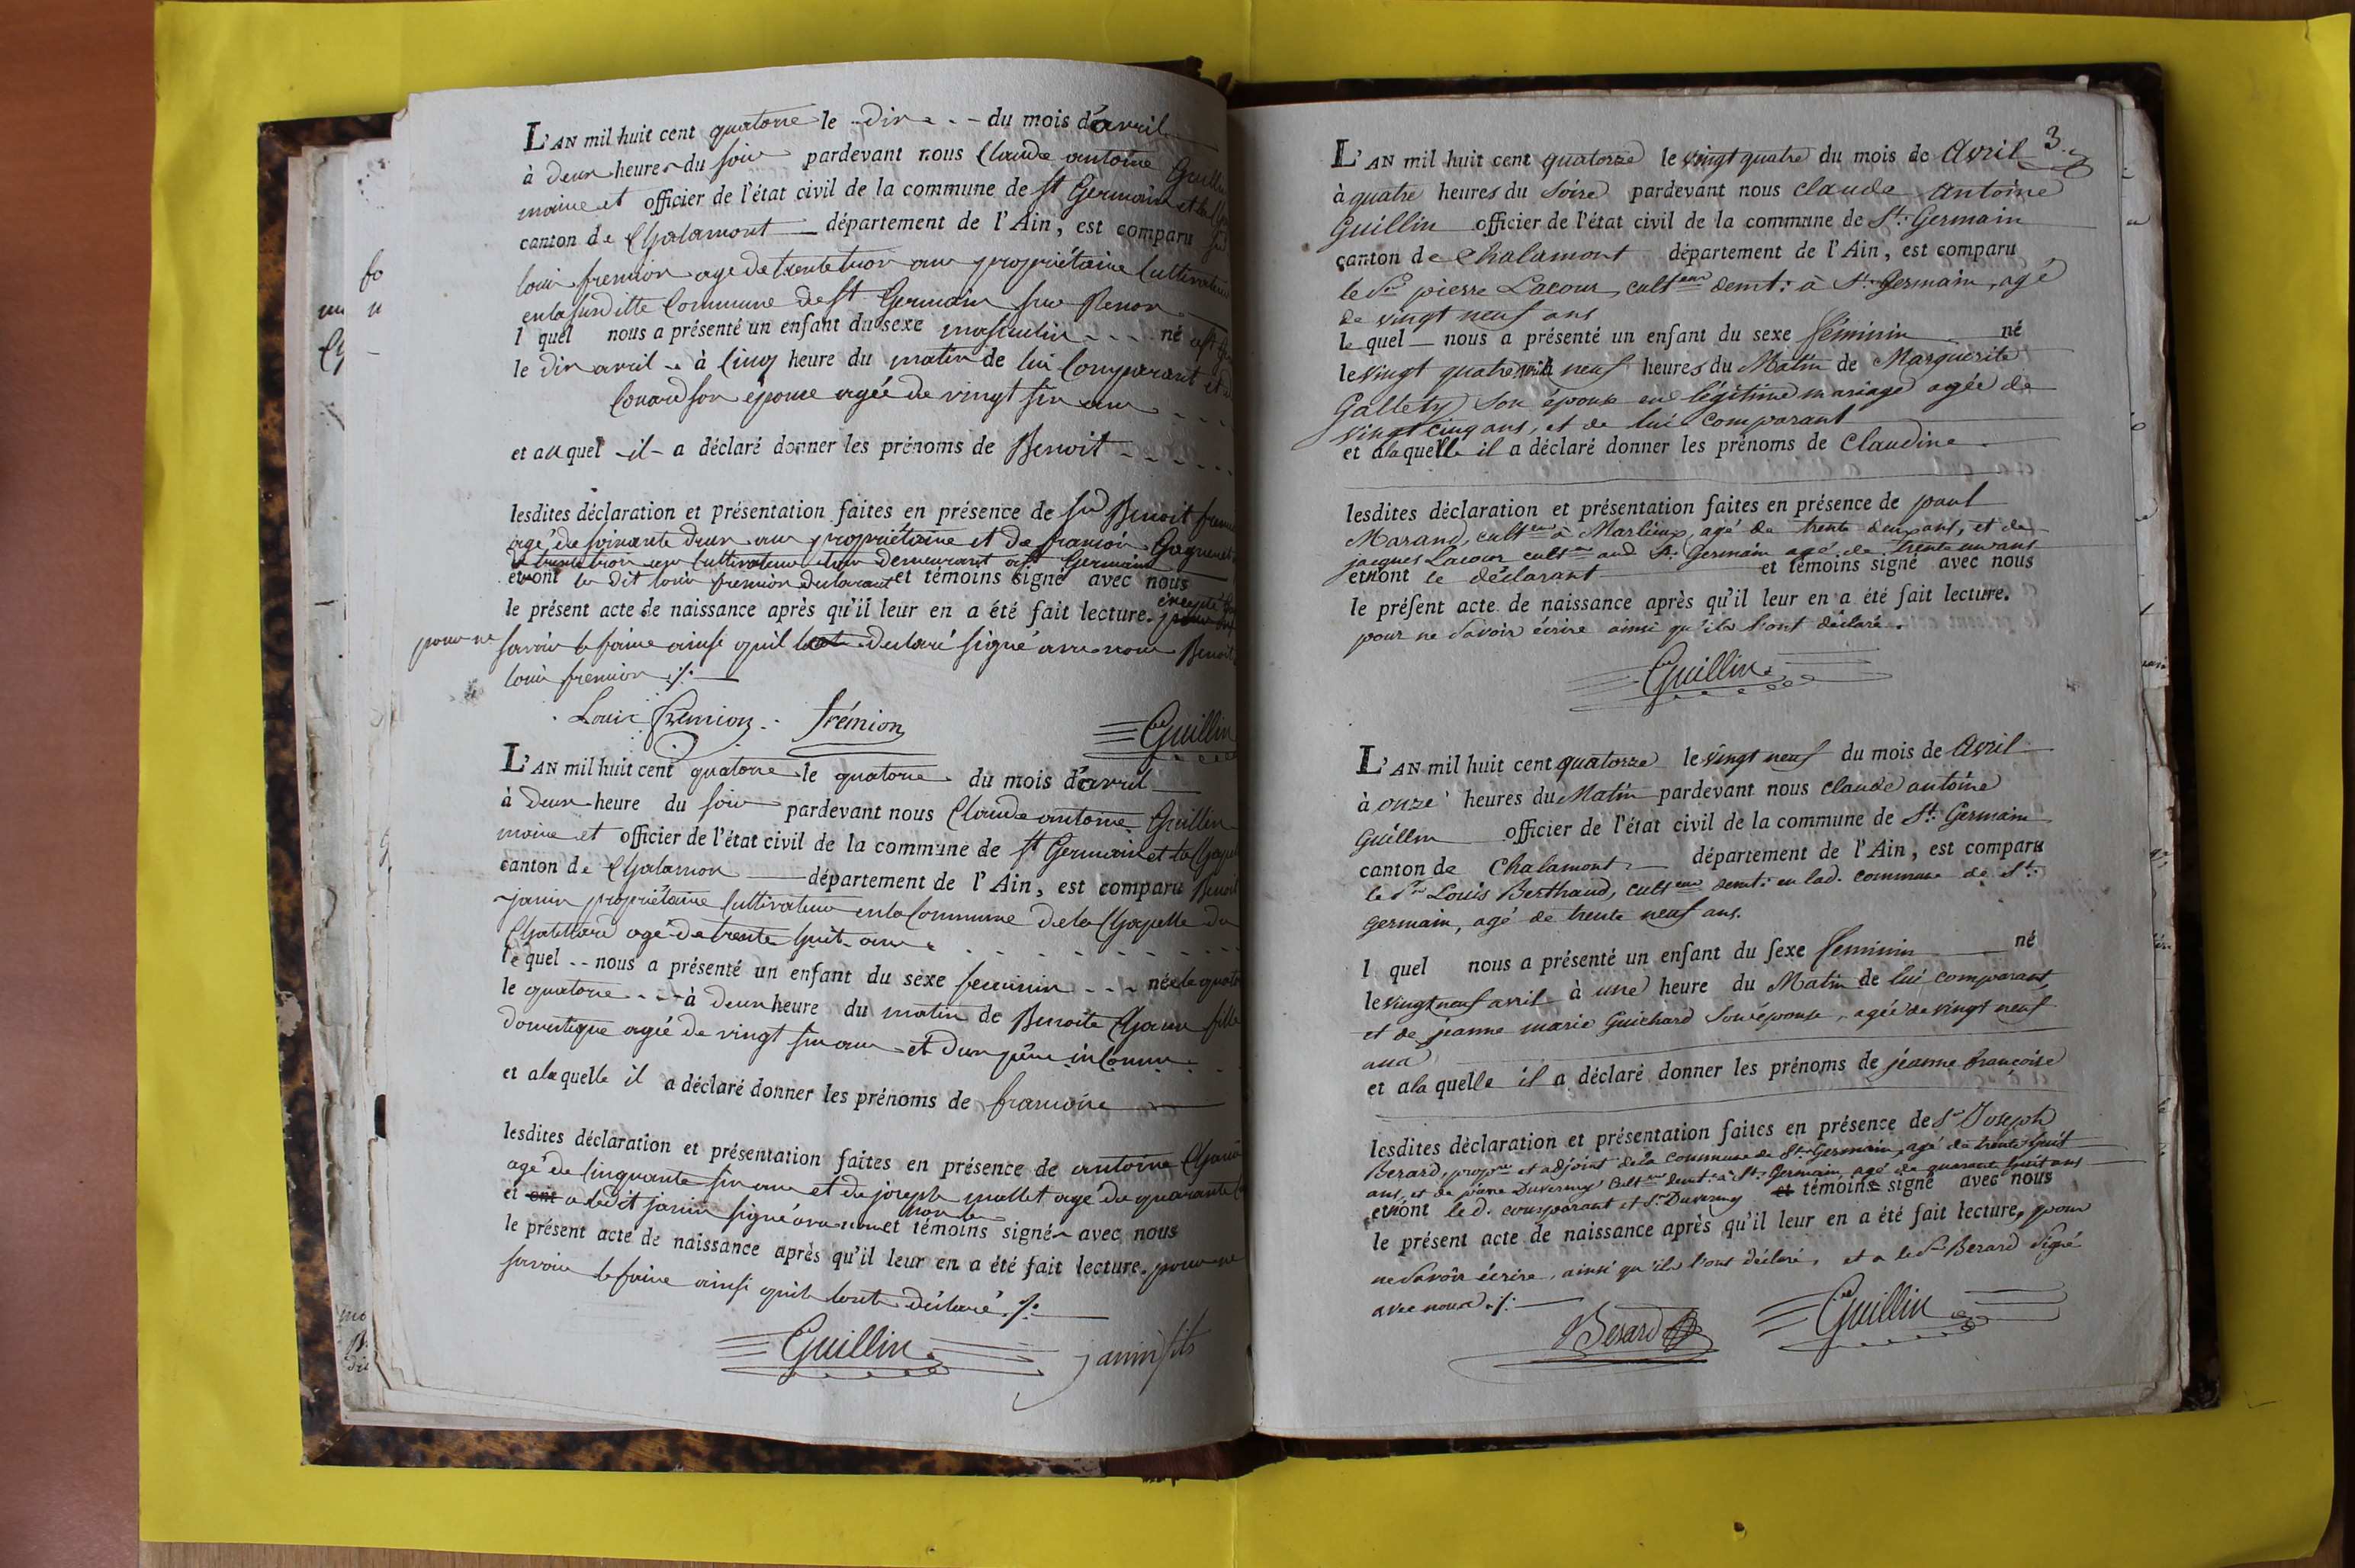 L'AN mil huit cent quatorze le dix - - - du mois d'avril
à deux heures du soir pardevant nous Claude antoine Guillin
maire et officier de l'état civil de la commune de st Germain et la
canton de Chalamont département de l'Ain, est comparu
louis fremion agé de trente trois ans propriétaire Cultivateur
en la susditte Commune de st Germain sur Renon
l quel nous a présenté un enfant du sexe masculin - - - né
le dix avril - à Cinq heure du matin de lui Comparant et
son épouse agée de vingt six ans - -
et au quel - il - a déclaré donner les prénoms de Benoit - - - - - -
lesdites déclaration et présentation faites en présence de Benoit
agé de soixante deux ans propriétaire et de françois
trente trois ans Cultivateur demeurant a st Germain
et ont le dit louis fremion declarant et témoins signé avec nous
le présent acte de naissance après qu'il leur en a été fait lecture. excepté
pour ne savoir le faire ainsi quil declaré signé avec nous Benoit
louis fremion ./.
Louis frémion. frémion Guillin
L'AN mil huit cent quatorze le quatorze du mois d'avril
à deux heure du soir pardevant nous Claude antoine Guillin
maire et officier de l'état civil de la commune de st Germain et la
canton de Chalamon département de l'Ain, est comparu Benoit
janin propriétaire Cultivateur en la Commune de la Chapelle du
Chatellard agé de trente huit ans
le quel - - nous a présenté un enfant du sexe feminin - - - née le
le quatorze - - - à deux heure du matin de Benoite fille
domestique agée de vingt six ans et d'un père inConnu
et a la quelle il a déclaré donner les prénoms de francoise
lesdites déclaration et présentation faites en présence de antoine
agé de Cinquante six ans et de joseph mallet agé de quarante
et ont a ledit janin signé avec nous et non les témoins signé avec nous
le présent acte de naissance après qu'il leur en a été fait lecture. pour ne
savoir le faire ainsi quils lont déclaré ./.
Guillin janin fils
3.
L'AN mil huit cent quatorze le vingt quatre du mois de Avril
à quatre heures du Soire pardevant nous claude Antoine
Guillin officier de l'état civil de la commune de St. Germain
canton de Chalamont département de l'Ain, est comparu
le Sr pierre Lacour, culteur demt. à St. Germain, agé
de vingt neuf ans
le quel nous a présenté un enfant du sexe féminin né
le vingt quatre avril neuf heures du Matin de Marguerite
Galléty Son épouse en légitime mariage agée de
vingt cinq ans, et de lui comparant
et a la quelle il a déclaré donner les prénoms de Claudine.
lesdites déclaration et présentation faites en présence de paul
Marand, culteur à Marlieux, agé de trente deux ans, et de
jacques Lacour culteur aud St. Germain agé de trente un ans
et n'ont le déclarant et témoins signé avec nous
le présent acte de naissance après qu'il leur en a été fait lecture.
pour ne Savoir écrire ainsi qu'ils l'ont déclaré.
Guillin
L'AN mil huit cent quatorze le vingt neuf du mois de Avril
à onze heures du Matin pardevant nous claude antoine
Guillin officier de l'état civil de la commune de St. Germain
canton de Chalamont département de l'Ain, est comparu
le Sr Louis Berthaud, culteur demt. en lad. commune de St.
Germain, agé de trente neuf ans.
l quel nous a présenté un enfant du sexe feminin né
le vingt neuf avril à une heure du Matin de lui comparant,
et de jeanne marie Guichard Son épouse, agée de vingt neuf
ans
et a la quelle il a déclaré donner les prénoms de jeanne françoise
lesdites déclaration et présentation faites en présence de Sr Joseph
Berard, propre et adjoint de la commune de St. Germain, agé de trente huit
ans, et de pierre Duverney Culteur demt. à St. Germain, agé de quarante huit ans
et n'ont led. comparant et Sr Duverney et témoins signé avec nous
le présent acte de naissance après qu'il leur en a été fait lecture, pour
ne Savoir écrire, ainsi qu'ils l'ont déclaré, et a le Sr Berard Signé
avec nous ./.
Berard Guillin